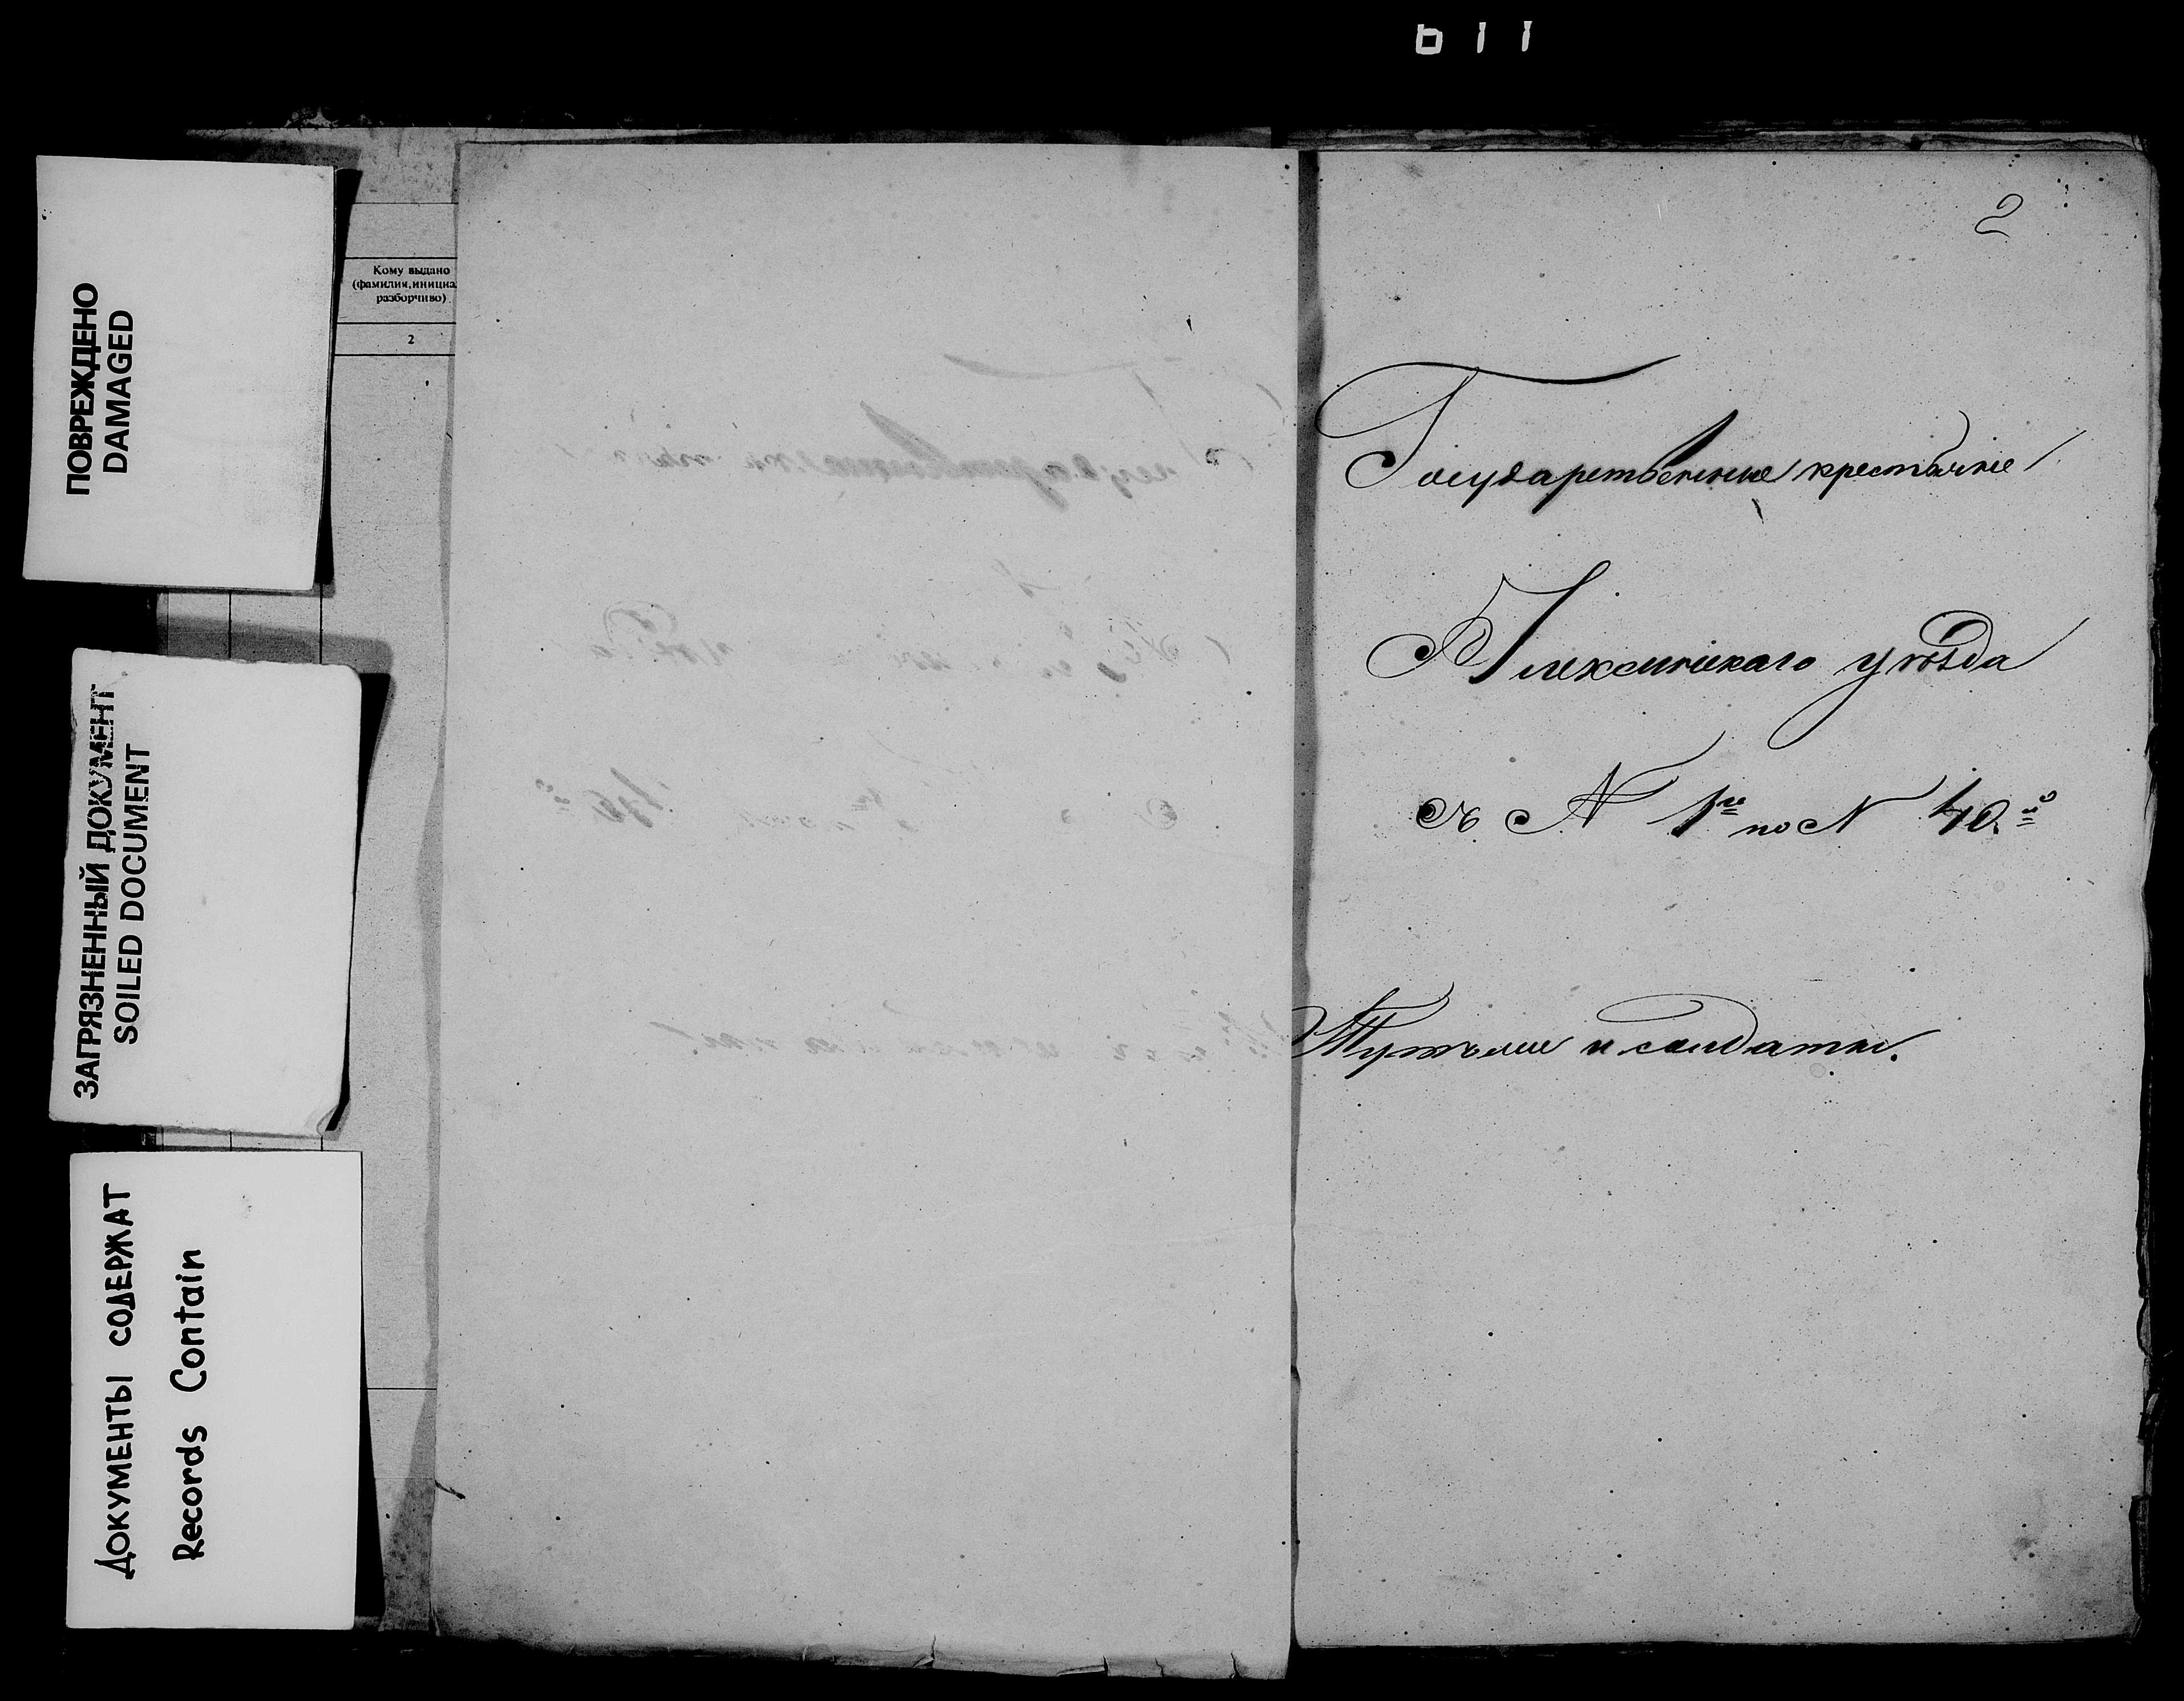 611
ПОВРЕЖДЕНО
DAMAGED
ЗАГРЯЗНЕННЫЙ ДОКУМЕНТ
SOILED DOCUMENT
ДОКУМЕНТЫ СОДЕРЖАТ
Records Contain
Кому выдано
(фамилия, инициа
разборчиво)
2
2
Государственные крестьяне
Алексинскаго уѣзда
съ N 1го по N 40.й
Тутъ же и солдаты.